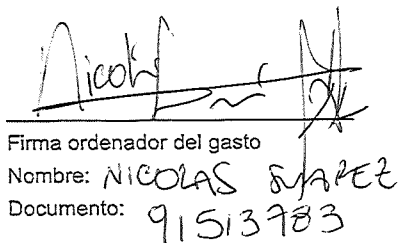 Nicolás
Firma ordenador del gasto
Nombre: NICOLAS SUAREZ
Documento: 91513783